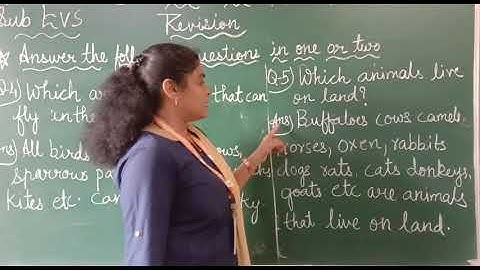 Sub EVS
Revision
Answer the questions in one or two
Q.4) Which that can
fly in the
Ans) All birds
sparrows
kites etc. can
Q.5) Which animals live
on land?
Ans) Buffaloes cows camels
horses, oxen, rabbits
dogs rats, cats donkeys,
goats etc are animals
that live on land.